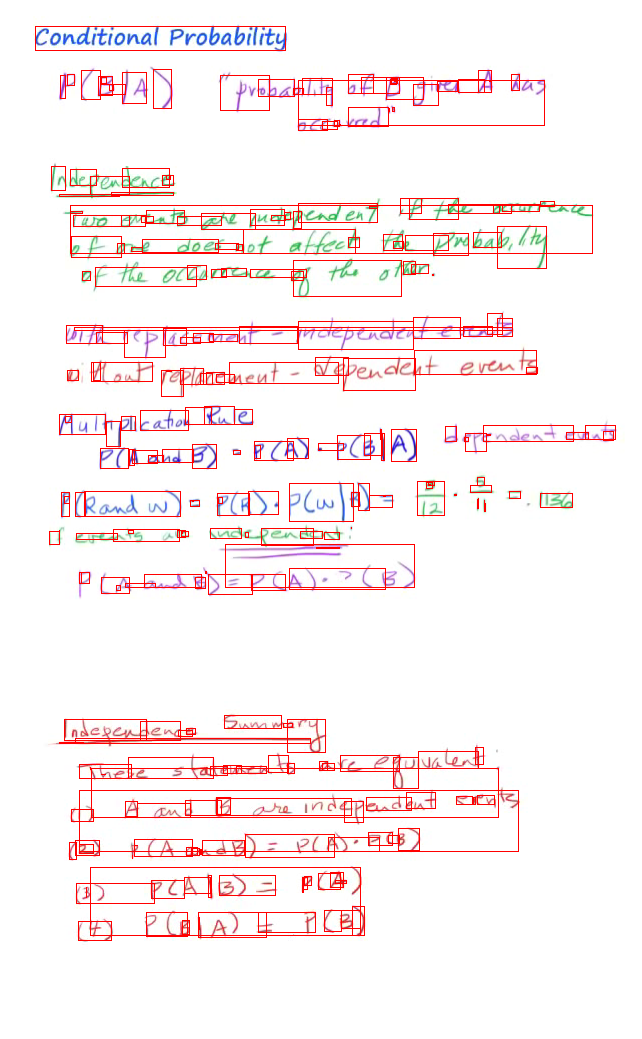 Conditional Probability
P(B|A) "probability of B given A has
occurred"
Independence
Two events are independent if the occurrence
of one does not affect the probability
of the occurrence of the other.
with replacement - independent events
without replacement - dependent events
Multiplication Rule
P(A and B) = P(A) · P(B|A) dependent events
P(R and W) = P(R) · P(W|R) = 3/12 · 5/11 = .136
If events are independent:
P(A and B) = P(A) · P(B)
Independence Summary
These statements are equivalent:
(1) A and B are independent events
(2) P(A and B) = P(A) · P(B)
(3) P(A|B) = P(A)
(4) P(B|A) = P(B)